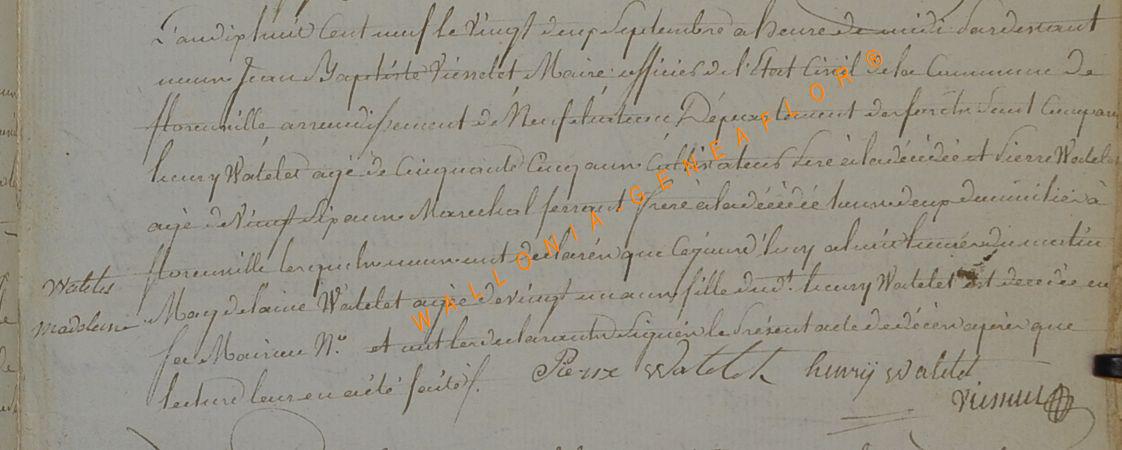 L'an dix huit Cent neuf le vingt deux Septembre a heure de midi Pardevant
nous Jean Baptiste Maire officier de l'Etat Civil de la Commune de
florenville arrondissement de Neufchateau Département des forêts Sont Comparu
henry Watelet agé de Cinquante Cinq ans Cultivateur Pere à la décédée et Pierre Watelet
agé de ans Marechal ferrant frère à la décédée tous deux domiciliés à
florenville lesquels nous ont déclaré que Cejourd'huy a huit heures du matin
Watelet
Madelaine
Magdelaine Watelet agée de vingt un ans fille dudt. henry Watelet est décédée en
Sa Maison No. et ont les déclarants Signés le Présent acte de décès après que
lecture leur en a été faite.
Pierre Watelet henrÿ Watelet
WALLONIA-GENEAFLOR ®